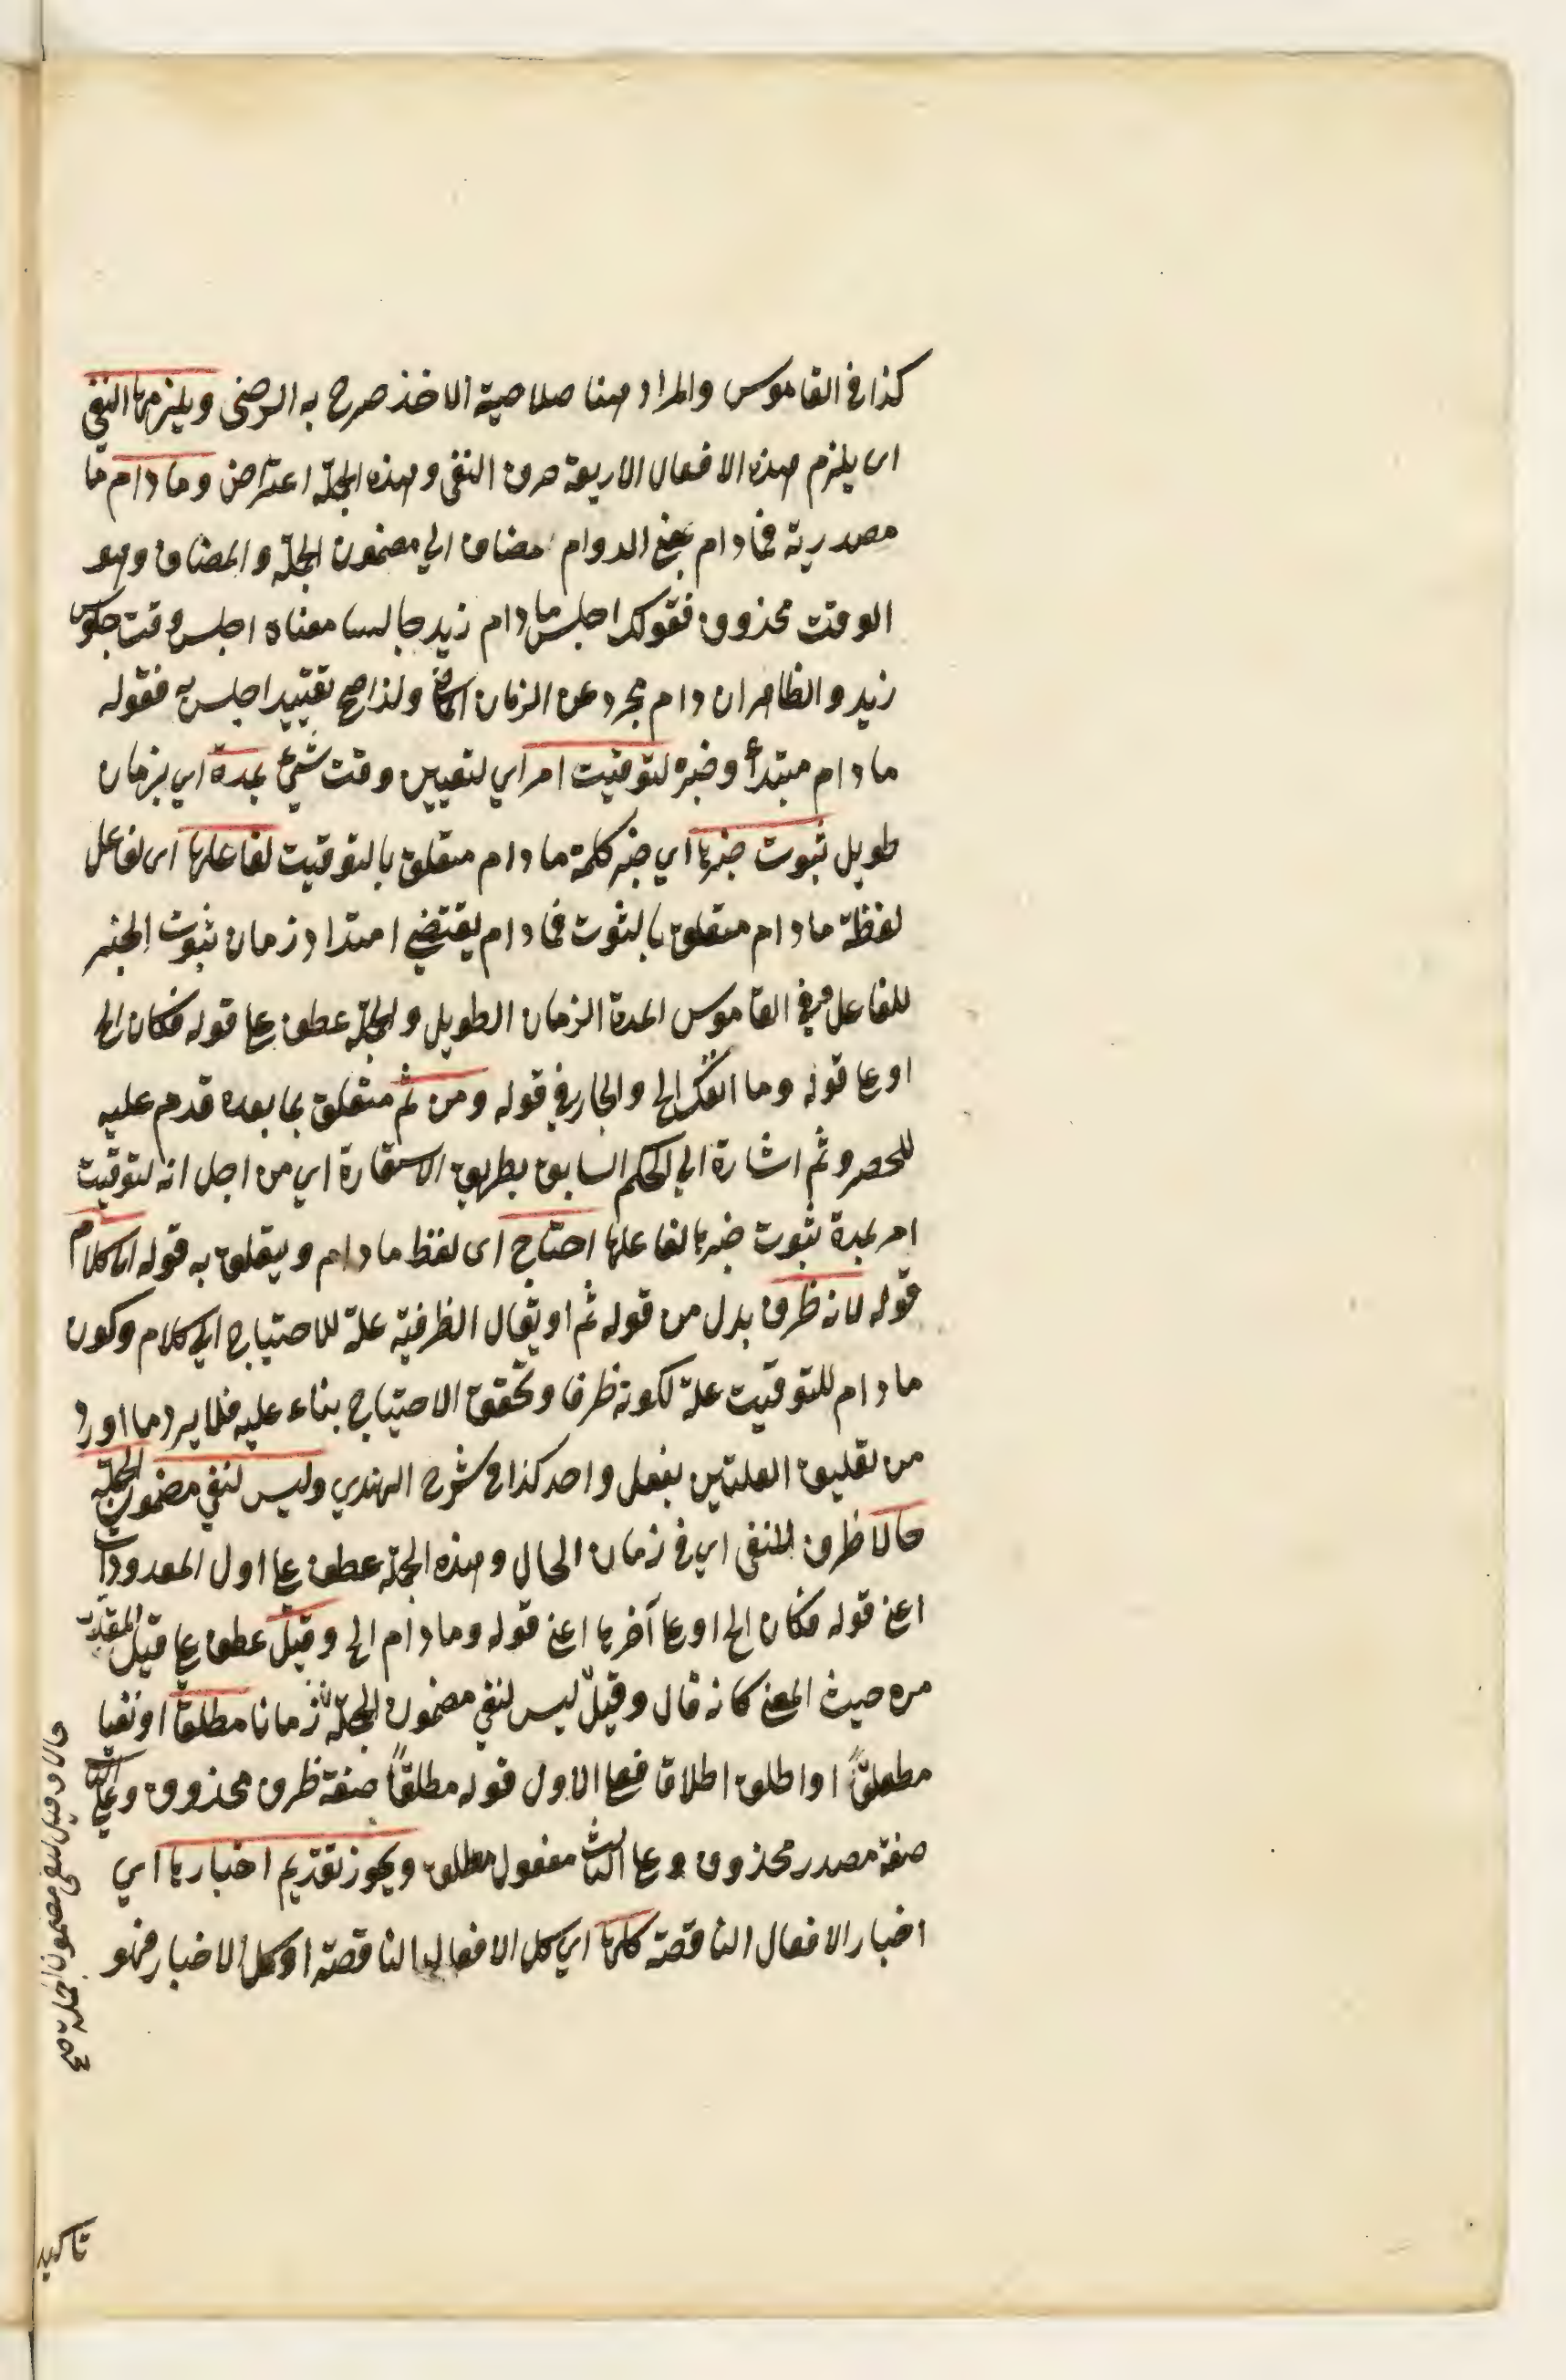 كذا في القاموس والمراد ههنا صلاحية الاخذ صرح به الرضى ويلزمها النفى
اى يلزم هذه الافعال الاربعة حرف النفى وهذه الجملة اعتراض وما دام ما
مصدرية فمادام بمعنى الدوام مضاف الي مضمون الجملة والمضاف وهو
الوقت محذوف فقولك اجلس مادام زيد جالسا معناه اجلس وقت جلوس
زيد والظاهر ان دام مجرد عن الزمان الماضي ولذا صح تقييد اجلس به فقوله
مادام مبتدأ وخبره لتوقيت امر اي لتعيين وقت شيئ بمدة اي بزمان
طويل ثبوت خبرها اي خبر كلمة مادام متعلق بالتوقيت لفاعلها اى لفاعل
لفظة مادام متعلق بالثبوت فمادام يقتضي امتداد زمان ثبوت الخبر
للفاعل وفي القاموس المدة الزمان الطويل والجملة عطف على قوله فكان الخ
او على قوله وما انفك الخ والجار في قوله ومن ثم متعلق بما بعده قدم عليه
للحصر وثم اشارة الي الحكم السابق بطريق الاستعارة اي من اجل انه لتوقيت
امر بمدة ثبوت خبرها لفاعلها احتاج اى لفظ مادام ويتعلق به قوله الى كلام
قوله لانه ظرف بدل من قوله ثم او يقال الظرفية علة للاحتياج الي كلام وكون
مادام للتوقيت علة لكونه ظرفا وتحقق الاحتياج بناء عليه فلا يرد ما اورد
من تعليق العلتين بفعل واحد كذا في شرح الهندي وليس لنفي مضمون الجملة
حالا ظرف للنفى اي في زمان الحال وهذه الجملة عطف على اول المعدودات
اعني قوله فكان الخ او على آخرها اعني قوله ومادام الخ وقيل عطف على قيل المقدر
من حيث المعنى كانه قال وقيل ليس لنفي مضمون الجملة زمانا مطلقا او نفيا
مطلقاً او اطلق اطلاقا فعلى الاول قوله مطلقاً صفة ظرف محذوف وعلى الثاني
صفة مصدر محذوف وعلى الثالث مفعول مطلق ويجوز تقديم اخبارها اي
اخبار الافعال الناقصة كلها اي كل الافعال الناقصة او كل الاخبار فهو
حالا وقيل لنفى مضمون الجملة صح
تاكيد